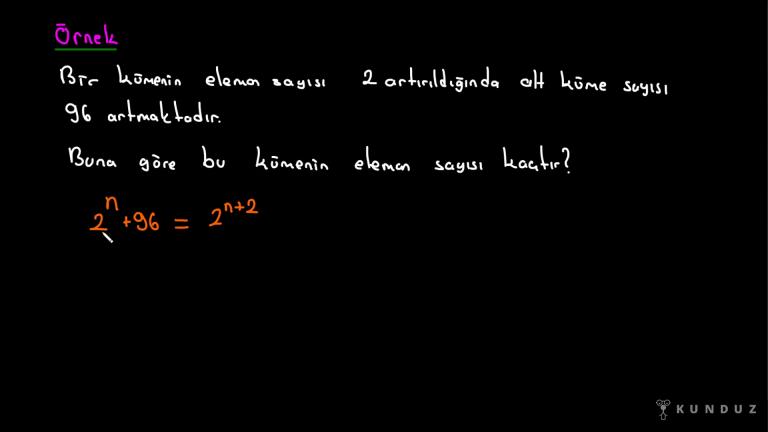 Örnek
Bir kümenin eleman sayısı 2 artırıldığında alt küme sayısı
96 artmaktadır.
Buna göre bu kümenin eleman sayısı kaçtır?
2^n + 96 = 2^{n+2}
KUNDUZ